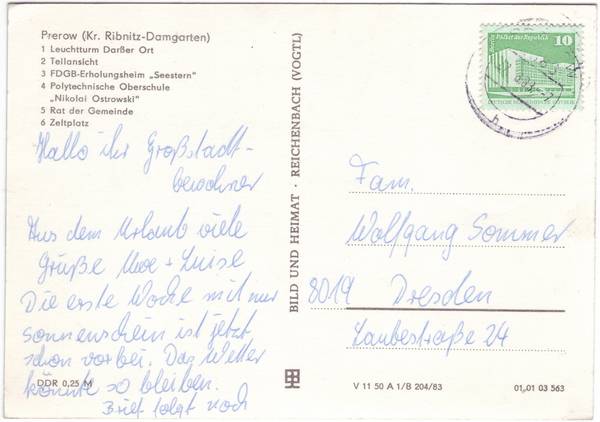 Prerow (Kr. Ribnitz-Damgarten)
1 Leuchtturm Darßer Ort
2 Teilansicht
3 FDGB-Erholungsheim „Seestern"
4 Polytechnische Oberschule
„Nikolai Ostrowski"
5 Rat der Gemeinde
6 Zeltplatz
Hallo ihr Großstadt-
bewohner
Aus dem Urlaub viele
Grüße Uwe + Luise
Die erste Woche mit nur
Sonnenschein ist jetzt
schon vorbei. Das Wetter
könnte so bleiben.
Brief folgt noch
DDR 0,25 M
BILD UND HEIMAT · REICHENBACH (VOGTL)
Berlin Palast der Republik
10
DEUTSCHE DEMOKRATISCHE REPUBLIK
Fam.
Wolfgang Sommer
8019 Dresden
Laubestraße 24
V 11 50 A 1/B 204/83
01 01 03 563